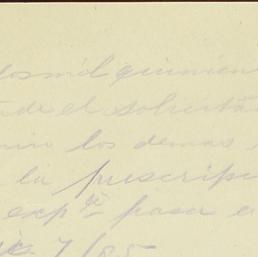 dosmil quinien
de el solicitan
los demas
la prescrip
expte pasa a
7/85